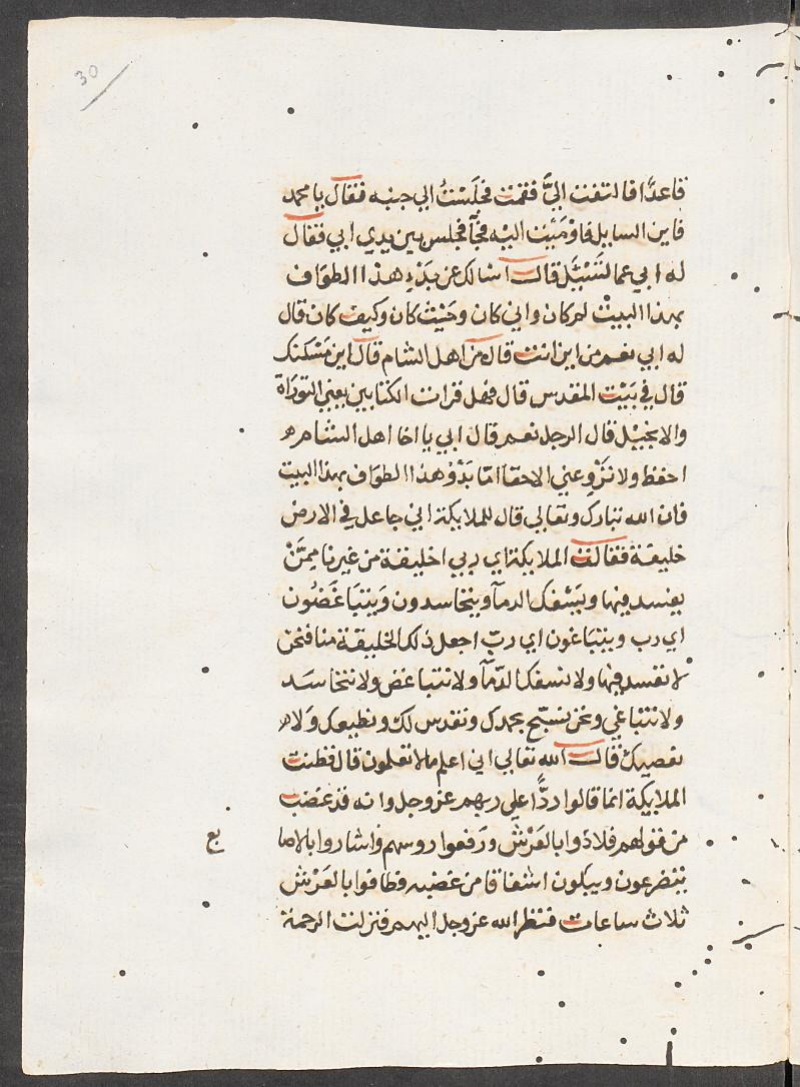 30
قاعدًا فالتفت اليَّ فقمت فجلَسْتُ الي جنبه فقال يا محمد
فاين السايل فاومَيْت اليْه فجآ فجلس بين يدي ابي فقال
له ابي عما تسْئل قال اسالك عن بَدْءِ هذا الطوَاف
بهذا البيتْ لم كان واني كان وحَيْث كان وكيف كان قال
له ابي نعم من اين انت قال من اهل الشام قال اين مَسْكنك
قال في بَيْت المقدس قال فهل قرات الكتابين يعني التورَاة
والانجيْل قال الرجل نعم قال ابي يا اخا اهل الشام
احفظ ولا تَرْوِ عني الا حقا امّا بَدْوُ هذا الطوَاف بهذا البيت
فان الله تبارك وتعالي قال للملايكة اني جاعل في الارض
خليفة فقالت الملايكة اي ربي اخليفة من غيرنا ممِنَّنْ
يفسد فيها ويَسْفك الدمآ ويتحاسدون وَيتبَاغَضُون
اي رب ويتبَاغون اي ربّ اجعل ذلك الخليفة منا فنحن
لا نفسد فيها ولا نسفك الدّمآ ولا نتباغض ولا نتحاسَد
ولا نتباغي ونحن نسبّح بحمدك ونقدس لك ونطيعك وَلا
نعصيك قال الله تعالي اني اعلم ما لا تعلمون قال فظنت
الملايكة انما قالوا ردًّا علي ربهم عز وجل وانه قد غضب
من قولهم فلاذوا بالعَرْش ورَفعوا روسهم واشاروا بالاصا
بع
يتضرعون ويبكون اشفاقا من غضبه وطافوا بالعَرْش
ثلاث ساعات فنظر الله عز وجل اليهم فنزلت الرحمة